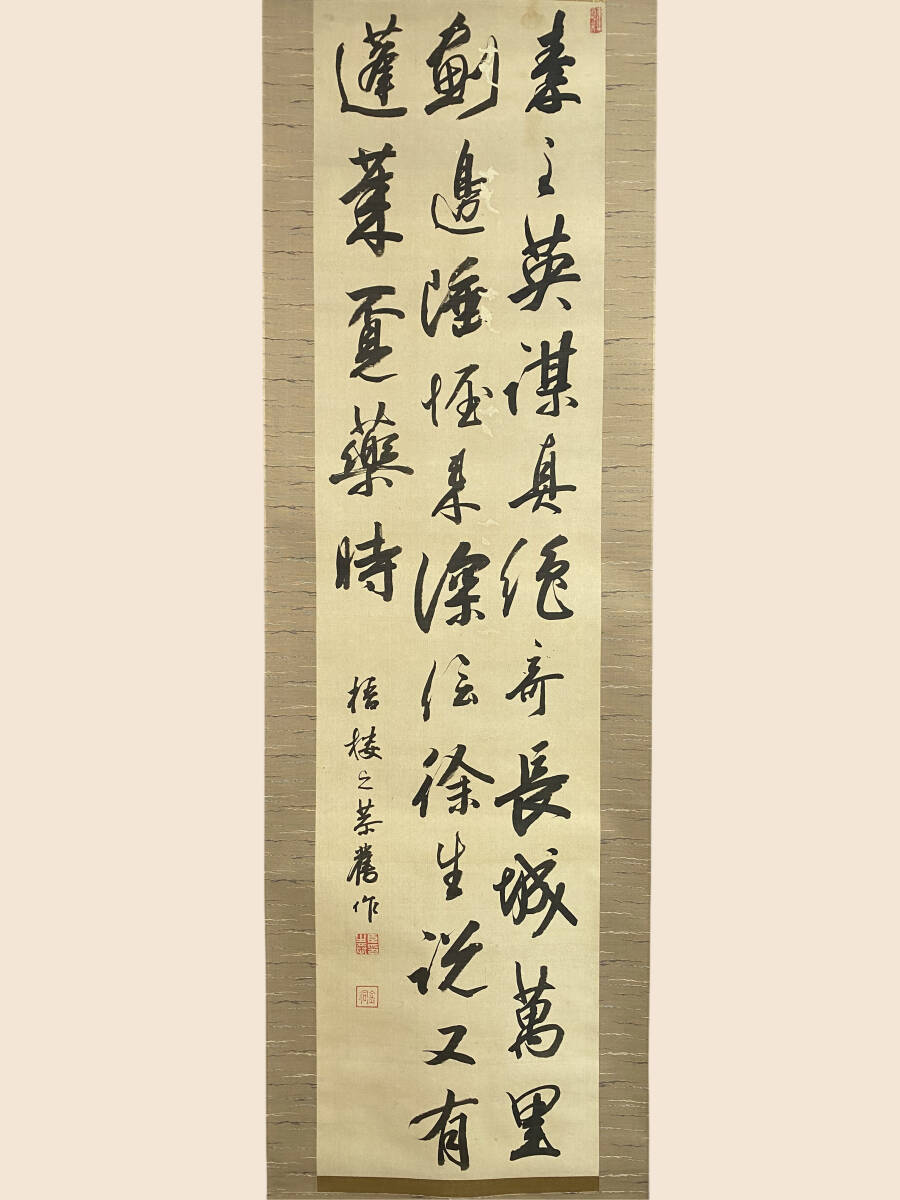 秦主英謀真絶奇長城萬里
劃邊陲怪来深信徐生説又有
蓬莱覔藥時
梧楼之恭舊作